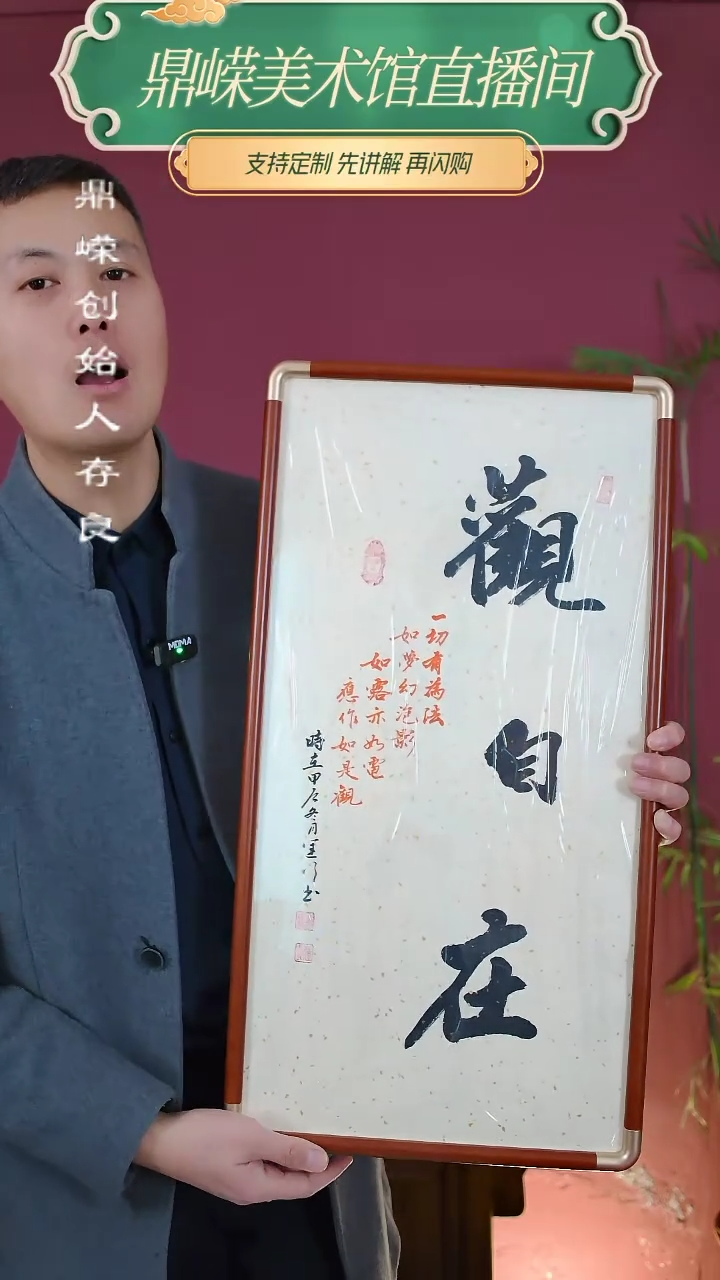 鼎嵘美术馆直播间
支持定制 先讲解 再闪购
鼎嵘创始人存良
MOMA
觀自在
一切有為法
如夢幻泡影
如露亦如電
應作如是觀
時在甲辰冬月
书